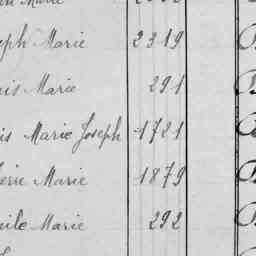 Marie
eph Marie 2319
is Marie 291
is Marie Joseph 1721
erre Marie 1879
ile Marie 292